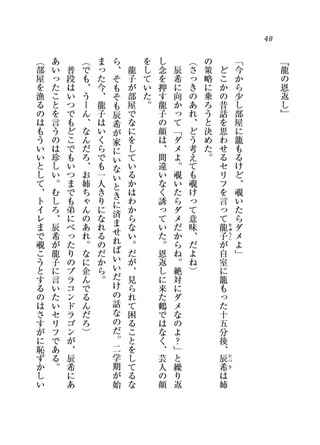 48
『龍の恩返し』
「今から少し部屋に籠もるけど、覗いたらダメよ」
どこかの昔話を思わせるセリフを言って龍子が自室に籠もった十五分後、辰希は姉
の策略に乗ろうと決めた。
（さっきのあれ、どう考えても覗けって意味、だよね）
辰希に向かって「ダメよ。覗いたらダメだからね。絶対にダメなのよ？」と繰り返
し念を押す龍子の顔は、間違いなく誘っていた。恩返しに来た鶴ではなく、芸人の顔
をしていた。
龍子が部屋でなにをしているかはわからない。だが、見られて困ることをしてるな
ら、そもそも辰希が家にいないときに済ませればいいだけの話なのだ。二学期が始
まった今、龍子はいくらでも一人きりになれるのだから。
（でも、うーん、なんだろ、お姉ちゃんのあれ。なに企んでるんだろ）
普段はいつでもどこでもいつまでも弟にべったりのブラコンドラゴンが、辰希にあ
あいったことを言うのは珍しい。むしろ、辰希が龍子に言いたいセリフである。
（部屋を漁るのはもういいとして、トイレまで覗こうとするのはさすがに恥ずかしい